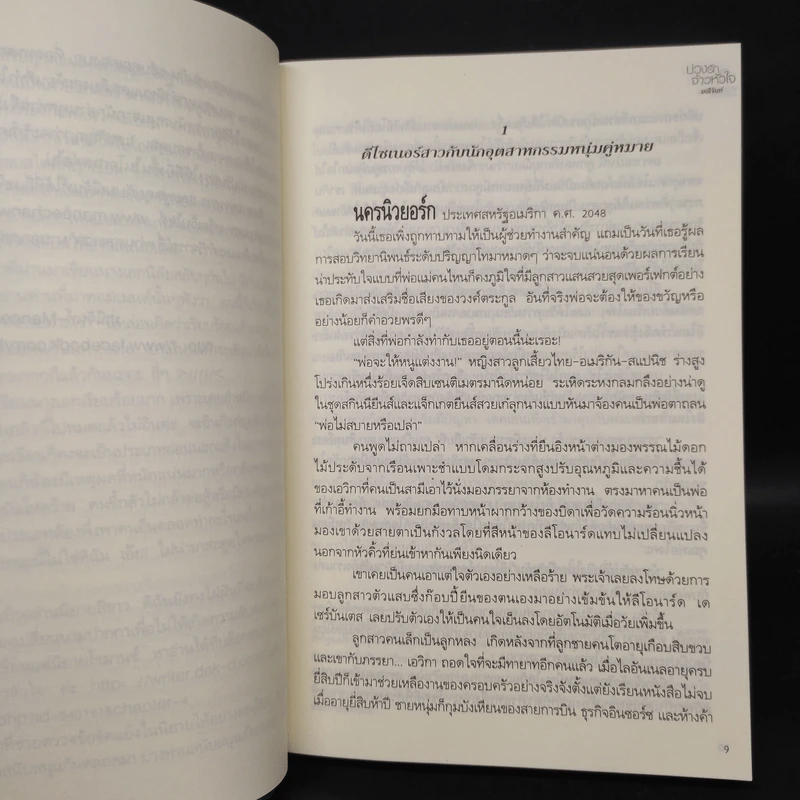 บ่วงรัก
จ้าวหัวใจ
มณีจันท์
1
ดีไซเนอร์สาวกับนักอุตสาหกรรมหนุ่มคู่หมาย
นครนิวยอร์ก ประเทศสหรัฐอเมริกา ค.ศ. 2048
วันนี้เธอเพิ่งถูกทาบทามให้เป็นผู้ช่วยทำงานสำคัญ แถมเป็นวันที่เธอรู้ผล
การสอบวิทยานิพนธ์ระดับปริญญาโทมาหมาดๆ ว่าจะจบแน่นอนด้วยผลการเรียน
น่าประทับใจแบบที่พ่อแม่คนไหนก็คงภูมิใจที่มีลูกสาวแสนสวยสุดเพอร์เฟกต์อย่าง
เธอเกิดมาส่งเสริมชื่อเสียงของวงศ์ตระกูล อันที่จริงพ่อจะต้องให้ของขวัญหรือ
อย่างน้อยก็คำอวยพรดีๆ
แต่สิ่งที่พ่อกำลังทำกับเธออยู่ตอนนี้น่ะเรอะ!
“พ่อจะให้หนูแต่งงาน!” หญิงสาวลูกเสี้ยวไทย-อเมริกัน-สแปนิช ร่างสูง
โปร่งเกินหนึ่งร้อยเจ็ดสิบเซนติเมตรมานิดหน่อย ระเหิดระหงกลมกลึงอย่างน่าดู
ในชุดสกินนียีนส์และแจ็กเกตยีนส์สวยเก๋ลุกนางแบบหันมาจ้องคนเป็นพ่อตาถลน
“พ่อไม่สบายหรือเปล่า”
คนพูดไม่ถามเปล่า หากเคลื่อนร่างที่ยืนอิงหน้าต่างมองพรรณไม้ดอก
ไม้ประดับจากเรือนเพาะชำแบบโดมกระจกสูงปรับอุณหภูมิและความชื้นได้
ของเอวิกาที่คนเป็นสามีเอาไว้นั่งมองภรรยาจากห้องทำงาน ตรงมาหาคนเป็นพ่อ
ที่เก้าอี้ทำงาน พร้อมยกมือทาบหน้าผากกว้างของบิดาเพื่อวัดความร้อนนิ่วหน้า
มองเขาด้วยสายตาเป็นกังวลโดยที่สีหน้าของลีโอนาร์ดแทบไม่เปลี่ยนแปลง
นอกจากหัวคิ้วที่ย่นเข้าหากันเพียงนิดเดียว
เขาเคยเป็นคนเอาแต่ใจตัวเองอย่างเหลือร้าย พระเจ้าเลยลงโทษด้วยการ
มอบลูกสาวตัวแสบซึ่งก๊อบปี้ยีนของตนเองมาอย่างเข้มข้นให้ลีโอนาร์ด เด
เซร์บันเตส เลยปรับตัวเองให้เป็นคนใจเย็นลงโดยอัตโนมัติเมื่อวัยเพิ่มขึ้น
ลูกสาวคนเล็กเป็นลูกหลง เกิดหลังจากที่ลูกชายคนโตอายุเกือบสิบขวบ
และเขากับภรรยา... เอวิกา ถอดใจที่จะมีทายาทอีกคนแล้ว เมื่อไลอันเนลอายุครบ
ยี่สิบปีก็เข้ามาช่วยเหลืองานของครอบครัวอย่างจริงจังตั้งแต่ยังเรียนหนังสือไม่จบ
เมื่ออายุยี่สิบห้าปี ชายหนุ่มก็กุมบังเหียนของสายการบิน ธุรกิจอินชอร์ซ และห้างค้า
9